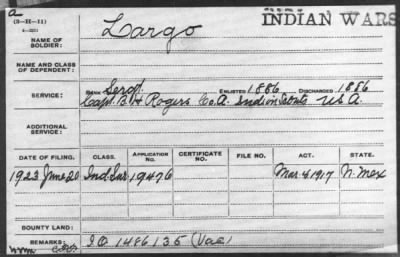 a
INDIAN WARS
(3-II-11)
NAME OF SOLDIER: Largo
NAME AND CLASS OF DEPENDENT:
SERVICE: RANK Sergt. ENLISTED 1886 DISCHARGED 1886
Capt. B. H. Rogers Co. A. Indian Scouts U.S.A.
ADDITIONAL SERVICE:
DATE OF FILING. CLASS. APPLICATION NO. CERTIFICATE NO. FILE NO. ACT. STATE.
1923 June 20 Ind Sur 19476 Mar. 4 1917 N. Mex
BOUNTY LAND:
REMARKS: I.O. 1486135 (Vae)